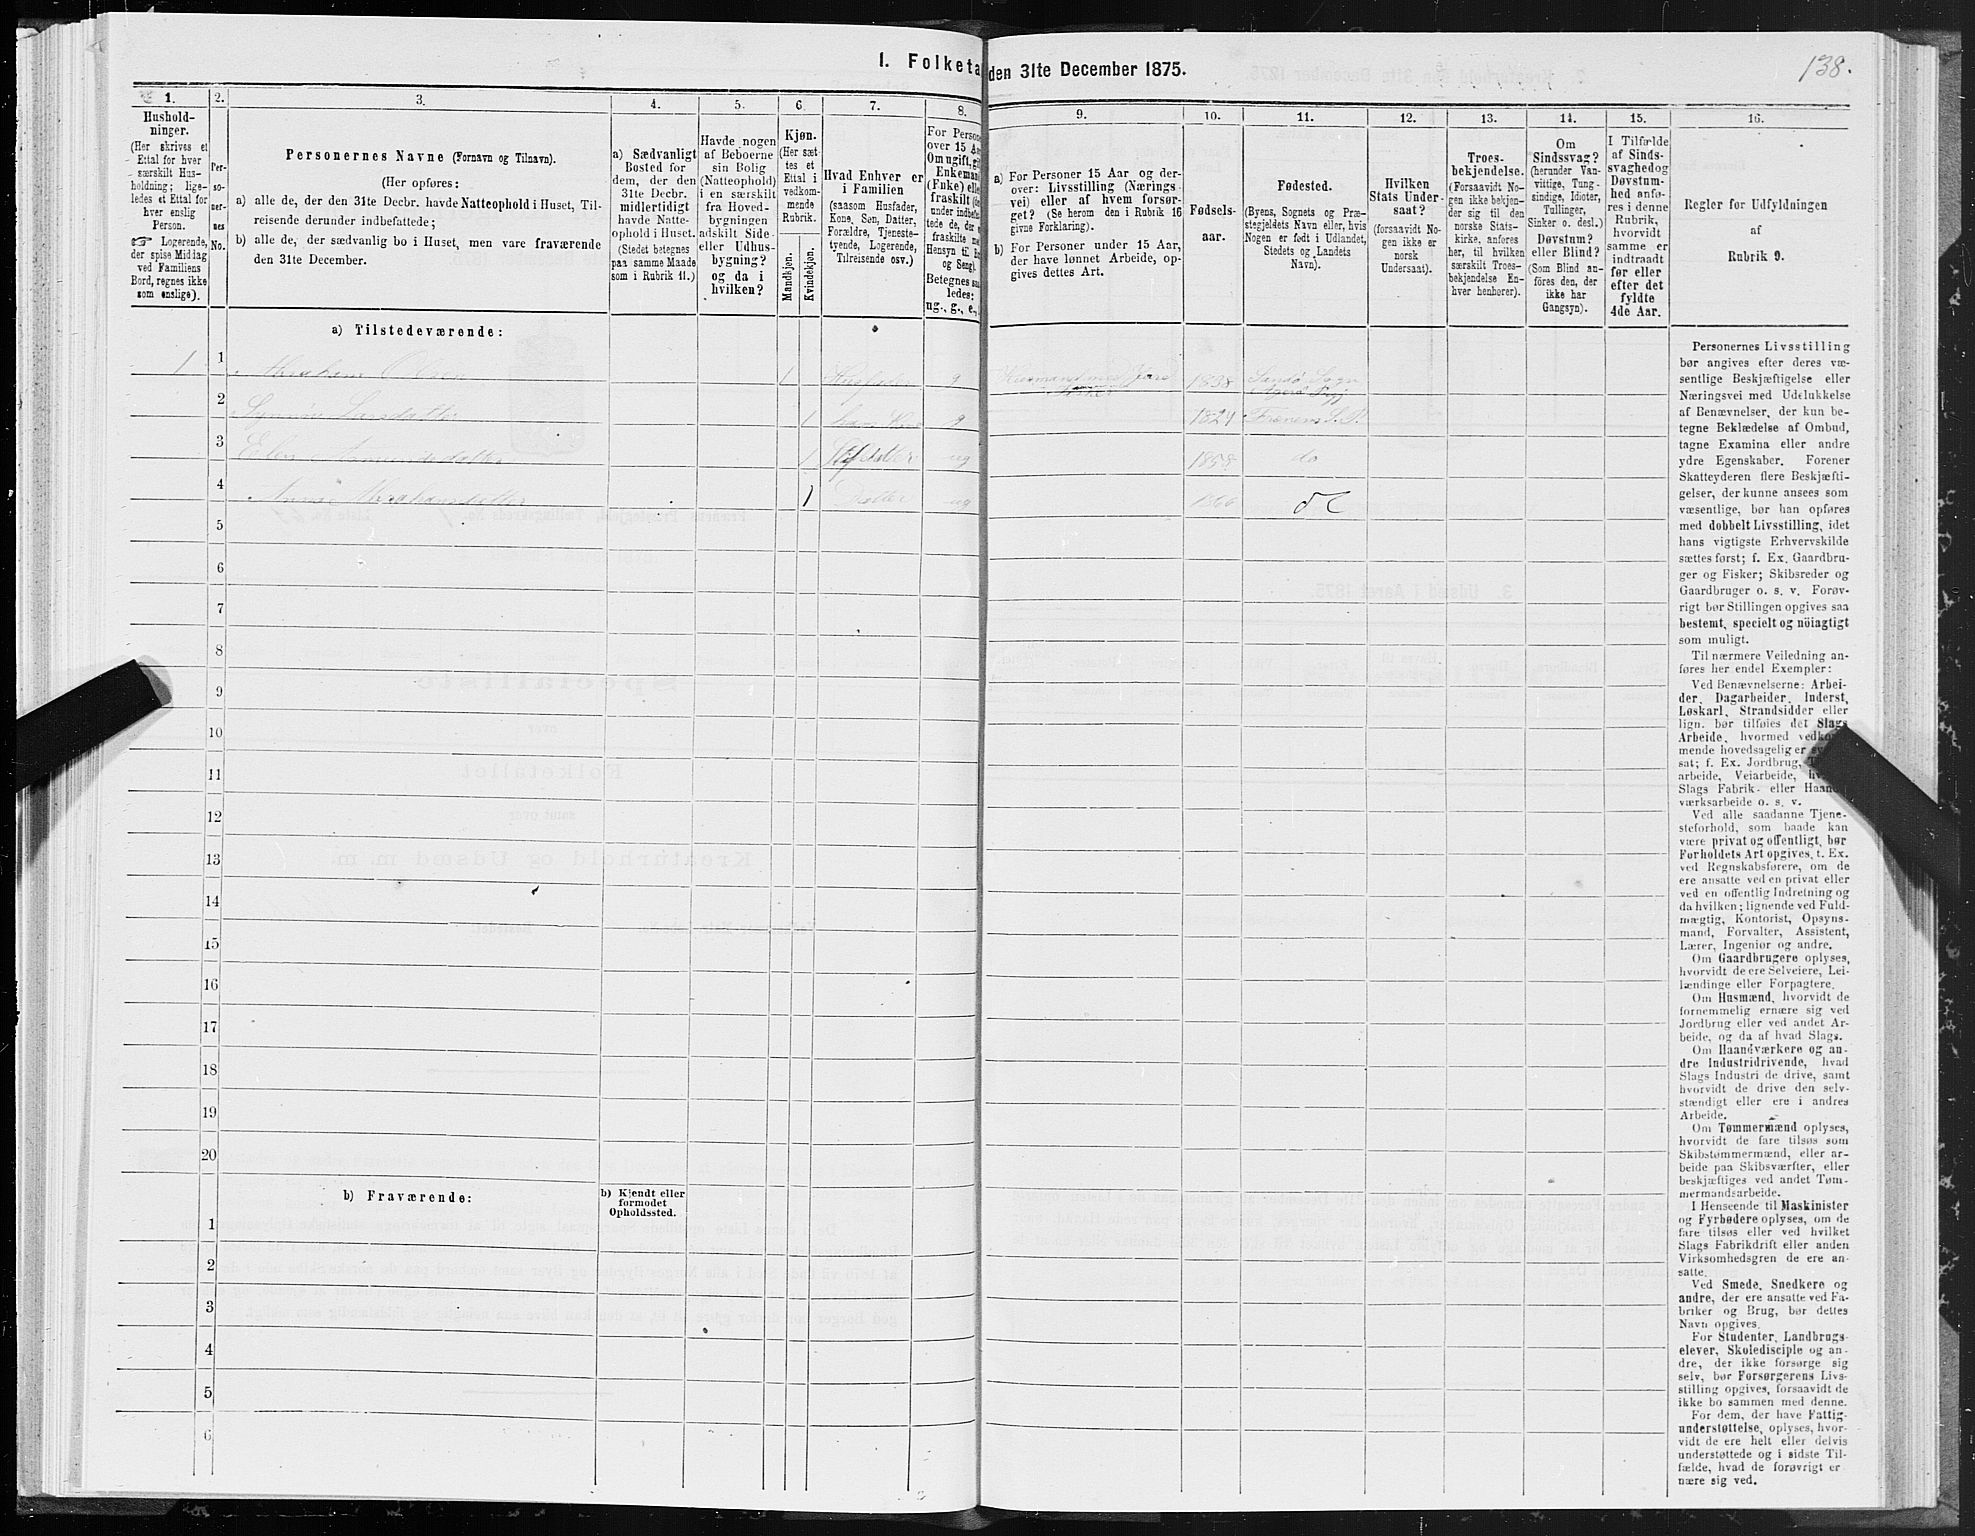 1. Folketa
den 31te December 1875.
138.
1.
Hushold-
ninger.
(Her skrives et
Ettal for hver
særskilt Hus-
holdning; lige-
ledes et Ettal for
hver enslig
Person.
Logerende,
der spise Middag
ved Familiens
Bord, regnes ikke
som enslige).
2.
Per-
so-
ner-
nes
No.
3.
Personernes Navne (Fornavn og Tilnavn).
(Her opføres:
a) alle de, der den 31te Decbr. havde Natteophold i Huset, Til-
reisende derunder indbefattede;
b) alle de, der sædvanlig bo i Huset, men vare fraværende
den 31te December.
4.
a) Sædvanligt
Bosted for
dem, der den
31te Decbr.
midlertidigt
havde Natte-
ophold i Huset.
(Stedet betegnes
paa samme Maade
som i Rubrik 11.)
5.
Havde nogen
af Beboerne
sin Bolig
(Natteophold)
i en særskilt
fra Hoved-
bygningen
adskilt Side-
eller Udhus-
bygning?
og da i
hvilken?
6.
Kjøn.
(Her sæt-
tes et
Ettal i
vedkom-
mende
Rubrik.
Mandkjøn.
Kvindekjøn.
7.
Hvad Enhver er
i Familien
(saasom Husfader,
Kone, Søn, Datter,
Forældre, Tjeneste-
tyende, Logerende,
Tilreisende osv.)
8.
For Person
over 15 Aa
Om ugift, gi
Enkeman
(Enke) elle
fraskilt
under indbef
tede, de, der
fraskilte m
Hensyn til Bo
og Seng).
Betegnes saa
ledes:
ug., g., e.,
9.
a) For Personer 15 Aar og der-
over: Livsstilling (Nærings-
vei) eller af hvem forsør-
get? (Se herom den i Rubrik 16
givne Forklaring).
b) For Personer under 15 Aar,
der have lønnet Arbeide, op-
gives dettes Art.
10.
Fødsels-
aar.
11.
Fødested.
(Byens, Sognets og Præ-
stegjeldets Navn eller, hvis
Nogen er født i Udlandet,
Stedets og Landets
Navn).
12.
Hvilken
Stats Under-
saat?
(forsaavidt No-
gen ikke er
norsk
Undersaat).
13.
Troes-
bekjendelse.
(Forsaavidt No-
gen ikke bekjen-
der sig til den
norske Stats-
kirke, anføres
her, til hvilken
særskilt Troes-
bekjendelse En-
hver henhører).
14.
Om
Sindssvag?
(herunder Van-
vittige, Tung-
sindige, Idioter,
Tullinger,
Sinker o. desl.)
Døvstum?
eller Blind?
(Som Blind an-
føres den, der
ikke har
Gangsyn).
15.
I Tilfælde
af Sinds-
svaghed og
Døvstum-
hed anfø-
res i denne
Rubrik,
hvorvidt
samme er
indtraadt
før eller
efter det
fyldte
4de Aar.
16.
Regler for Udfyldningen
af
Rubrik 9.
a) Tilstedeværende:
1 1 Abraham Olsen 1 Husfader g Husmand med Jord 1838 Sandø Sogn
2 1 g 1824
3 Elen Asmundsdatter 1 Stifdatter ug 1858 do
4 Anne Abrahamsdatter 1 Datter ug 1866
5
6
7
8
9
10
11
12
13
14
15
16
17
18
19
20
b) Fraværende:
b) Kjendt eller
formodet
Opholdssted.
1
2
3
4
5
6
Personernes Livsstilling
bør angives efter deres væ-
sentlige Beskjæftigelse eller
Næringsvei med Udelukkelse
af Benævnelser, der kun be-
tegne Beklædelse af Ombud,
tagne Examina eller andre
ydre Egenskaber. Forener
Skatteyderen flere Beskjæfti-
gelser, der kunne ansees som
væsentlige, bør han opføres
med dobbelt Livsstilling, idet
hans vigtigste Erhvervskilde
sættes først; f. Ex. Gaardbru-
ger og Fisker; Skibsreder og
Gaardbruger o. s. v. Forøv-
rigt bør Stillingen opgives saa
bestemt, specielt og nöiagtigt
som muligt.
Til nærmere Veiledning an-
føres her endel Exempler:
Ved Benævnelserne: Arbei-
der, Dagarbeider, Inderst,
Løskarl, Strandsidder eller
lign. bør tilføies det Slags
Arbeide, hvormed vedkom-
mende hovedsagelig er sy
sat; f. Ex. Jordbrug,
arbeide, Veiarbeide,
Slags Fabrik- eller Haan
værksarbeide o. s. v.
Ved alle saadanne Tjene-
steforhold, som baade kan
være privat og offentligt, bør
Forholdets Art opgives, t. Ex.
ved Regnskabsførere, om de
ere ansatte ved en privat eller
ved en offentlig Indretning og
da hvilken; lignende ved Fuld-
mægtig, Kontorist, Opsyns-
mand, Forvalter, Assistent,
Lærer, Ingeniør og andre.
Om Gaardbrugere oplyses,
hvorvidt de ere Selveiere, Lei-
lændinge eller Forpagtere.
Om Husmænd, hvorvidt de
fornemmelig ernære sig ved
Jordbrug eller ved andet Ar-
beide, og da af hvad Slags.
Om Haandværkere og an-
dre Industridrivende, hvad
Slags Industri de drive, samt
hvorvidt de drive den selv-
stændigt eller ere i andres
Arbeide.
Om Tømmermænd oplyses,
hvorvidt de fare tilsøs som
Skibstømmermænd, eller ar-
beide paa Skibsværfter, eller
beskjæftiges ved andet Tøm-
mermandsarbeide.
I Henseende til Maskinister
og Fyrbødere oplyses, om de
fare tilsøs eller ved hvilket
Slags Fabrikdrift eller anden
Virksomhedsgren de ere an-
satte.
Ved Smede, Snedkere og
andre, der ere ansatte ved Fa-
briker og Brug, bør dettes
Navn opgives.
For Studenter, Landbrugs-
elever, Skoledisciple og an-
dre, der ikke forsørge sig
selv, bør Forsørgerens Livs-
stilling opgives, forsaavidt de
ikke bo sammen med denne.
For dem, der have Fattig-
understøttelse, oplyses, hvor-
vidt de ere helt eller delvis
understøttede og i sidste Til-
fælde, hvad de forøvrigt er-
nære sig ved.